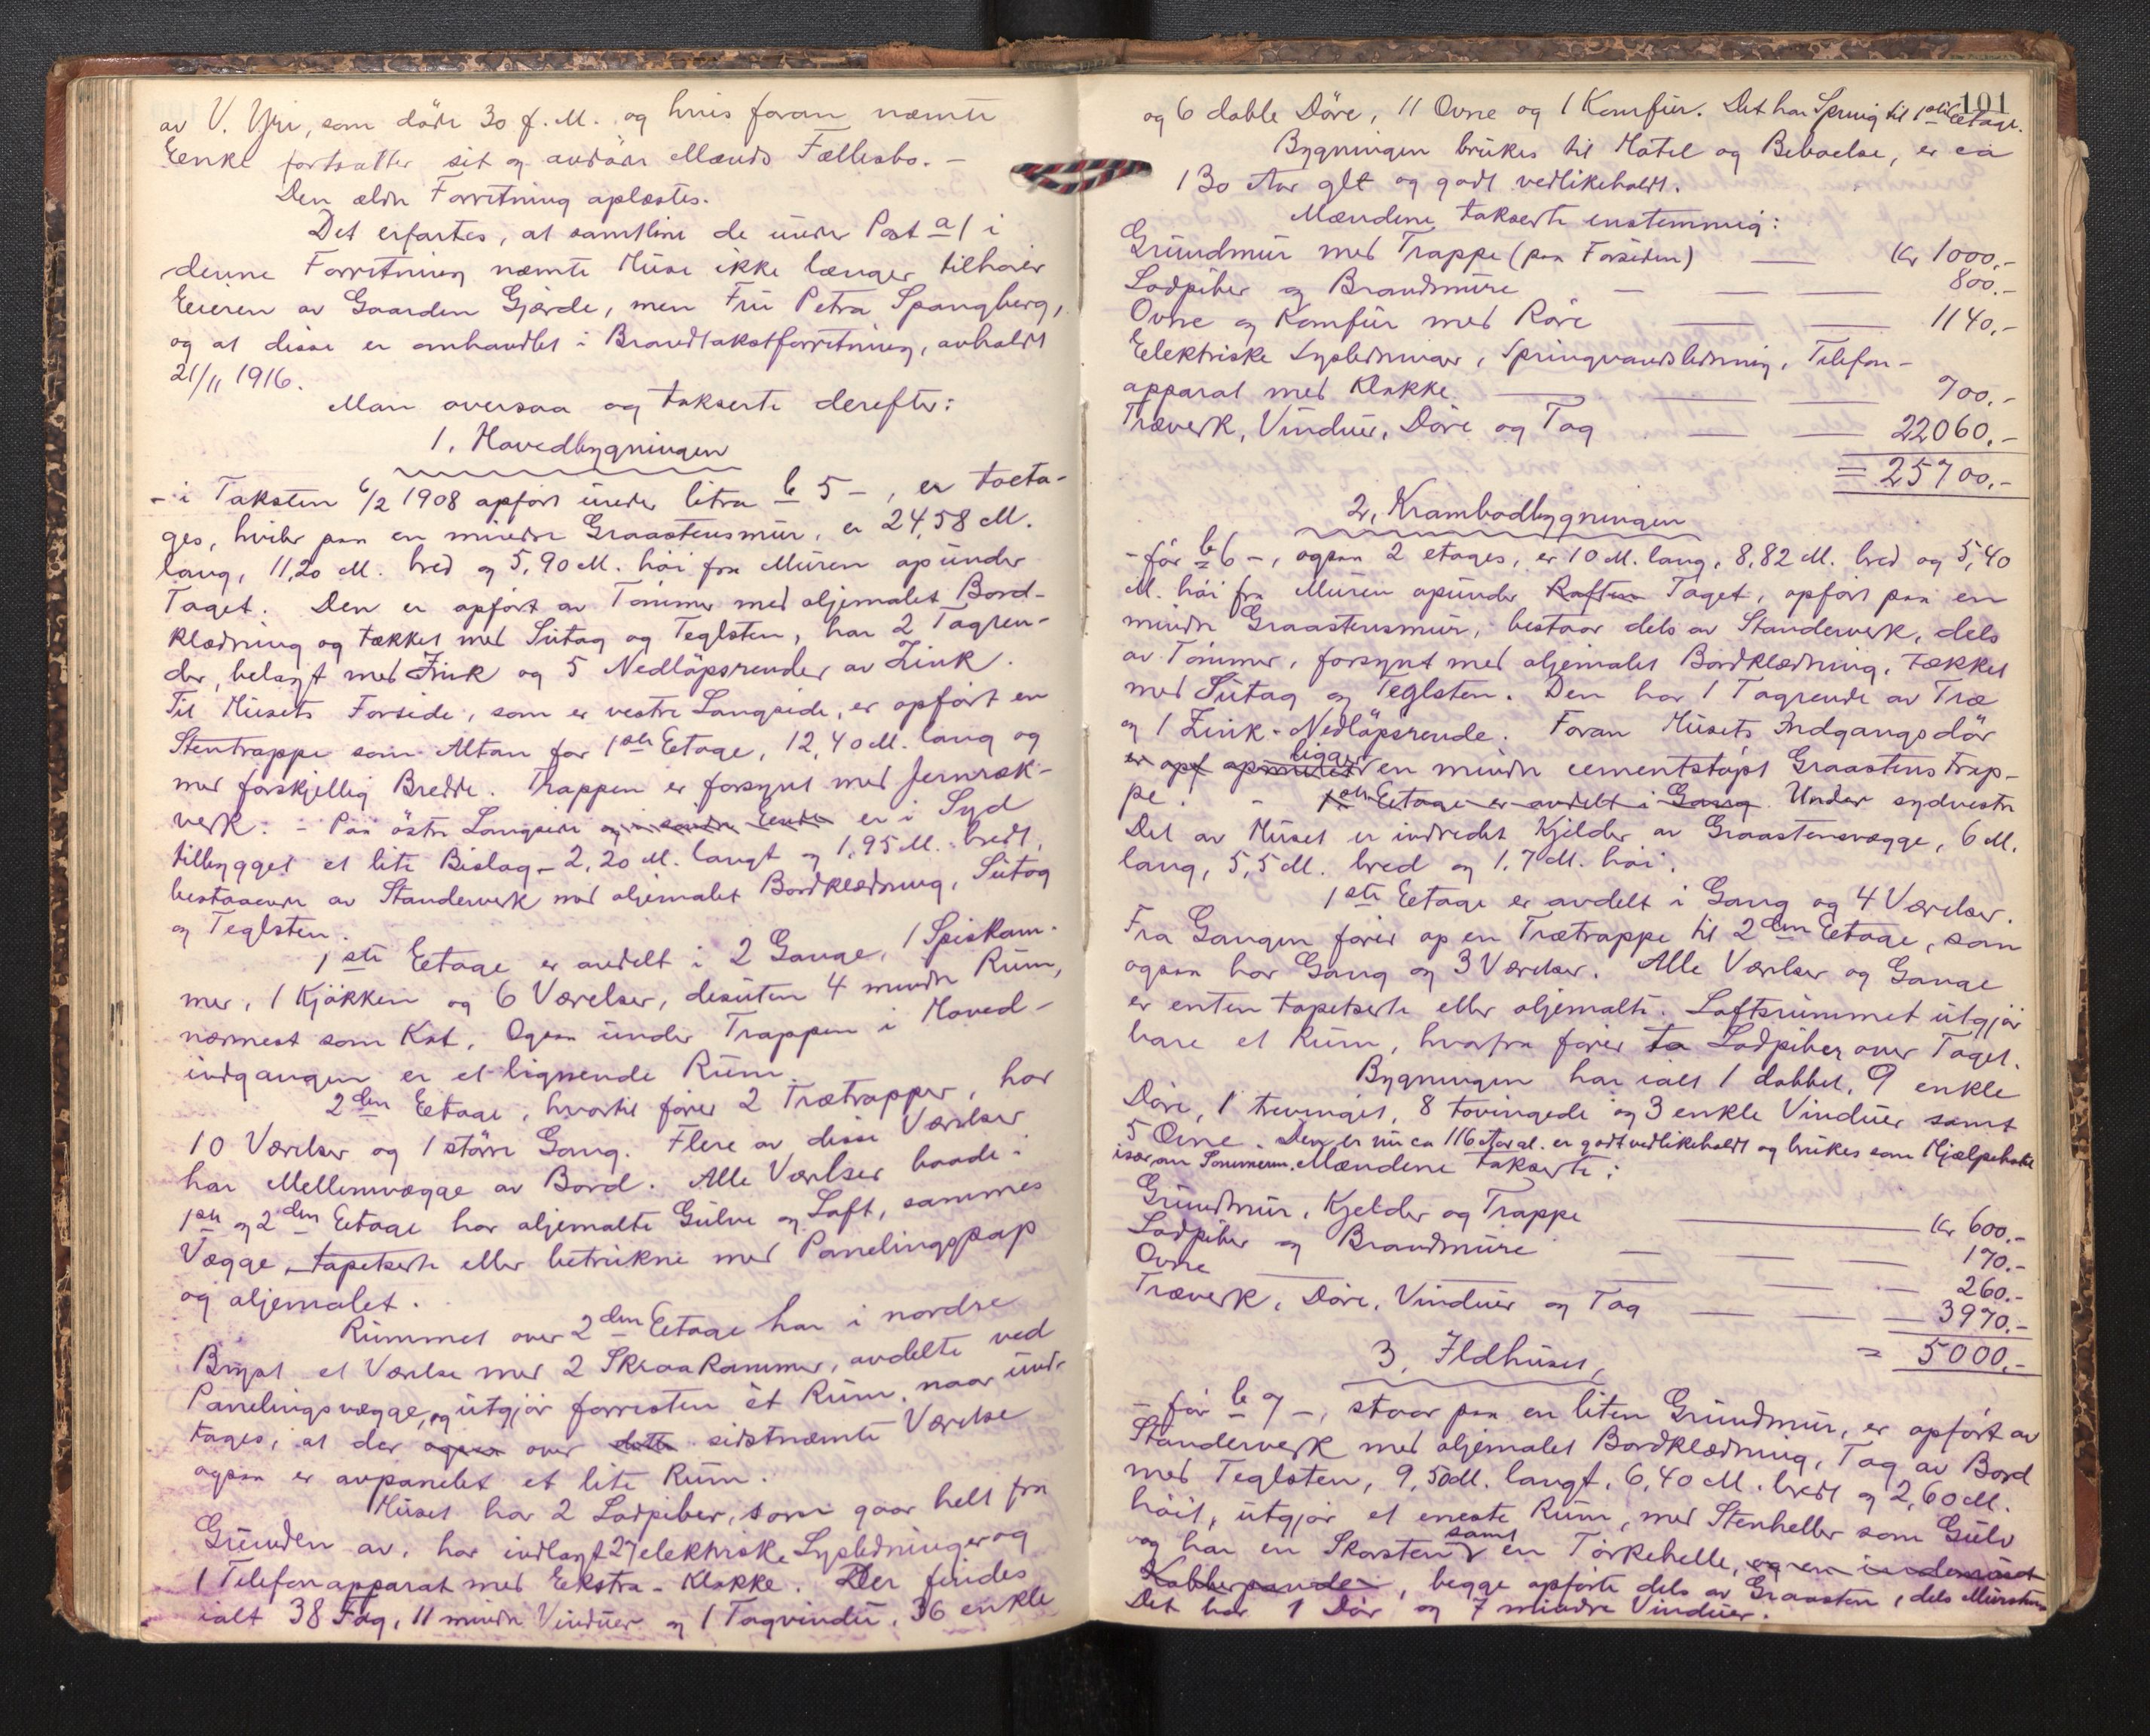 av V. Yri, som döde 30 f. M. og hvis foran nævnte
Eenke fortsætter sit og avdøde Mands Fællesbo. –
Den ældre Forretning oplæstes.
Det erfartes, at samtlime de under Post a 1 i
denne Forretning nævnte Huse ikke længer tilhører
Eieren av Gaarden Gjerde, men Fru Petra Spangberg,
og at disse er omhandlet i Brandtakstforretning, avholdt
21/11 1916.
Man oversaa og takserte derefter:
1. Hovedbygningen
– i Taksten 6/2 1908 opført under litra b 5 –, er toeta-
ges, hviler paa en mindre Graastensmur, er 24,58 M.
lang, 11,20 M. bred og 5,90 M. høi fra Muren op under
Taget. Den er opført av Tømmer med oljemalet Bord-
klædning og tækket med Sutag og Teglsten, har 2 Tagren-
der, belagt med Zink og 5 Nedløpsrender av Zink.
Til Husets Forside, som er vestre Langside, er opført en
Stentrappe som Altan for 1ste Eetage, 12,40 M. lang og
med forskjellig Bredde. Trappen er forsynt med Jernræk-
verk. – Paa østre Langside og i søndre Eende er i Syd
tilbygget et lite Bislag – 2,20 M. langt og 1,95 M. bredt,
bestaaende av Standerverk med oljemalet Bordklædning, Sutag
og Teglsten.
1ste Eetage er avdelt i 2 Gange, 1 Spiskam-
mer, 1 Kjøkken og 6 Værelser, desuten 4 mindre Rum,
nærmest som Kot. Ogsaa under Trappen i Hoved-
indgangen er et lignende Rum.
2den Eetage, hvortil fører 2 Trætrapper, har
10 Værelser og 1 større Gang. Flere av disse Værelser
har Mellemvægge av Bord. Alle Værelser baade i
1ste og 2den Eetage har oljemalte Gulve og Loft, sammes
Vægge tapetserte eller betrukne med Panelingspap
og oljemalet.
Rummet over 2den Eetage har i nordre
Bryst et Værelse med 2 Skraakammer, avdelte ved
Panelingsvægge, og utgjør forresten ét Rum, naar und-
tages, at der ogsaa over dette sidstnævnte Værelse
ogsaa er avpanelet et lite Rum.
Huset har 2 Lodpiber, som gaar helt fra
Grunden av, har indlagt 27 elektriske Lysledninger og
1 Telefonapparat med Ekstra-Klokke. Der findes
ialt 38 Fag, 11 mindre Vinduer og 1 Tagvindu, 36 enkle
101
og 6 doble Døre, 11 Ovne og 1 Komfur. Det har Spring til 1ste Eetage.
Bygningen brukes til Hotel og Beboelse, er ca
130 Aar glt og godt vedlikeholdt.
Mændene takserte enstemmig:
Grundmur med Trappe (paa Forsiden) — Kr 1000.-
Lodpiber og Brandmure — — — 800.-
Ovne og Komfur med Røre — — 1140.-
Eelektriske Lysledninger, Springvandsledning, Telefon-
apparat med Klokke — — — 700.-
Træverk, Vinduer, Døre og Tag — — 22060.-
= 25700.-
2. Krambodbygningen
– før b 6 –, ogsaa 2 etages, er 10 M. lang, 8,82 M. bred og 5,40
M. høi fra Muren opunder Raften Taget, opført paa en
mindre Graastensmur, bestaar dels av Standerverk, dels
av Tømmer, forsynt med oljemalet Bordklædning, tækket
med Sutag og Teglsten. Den har 1 Tagrende av Træ
og 1 Zink-Nedløpsrende. Foran Husets Indgangsdør
er opf opmuret ligger en mindre cementstøpt Graastens Trap-
pe. – 1ste Eetage er avdelt i Gang. Under sydvestre
Del av Huset er indredet Kjelder av Graastensvægge, 6 M.
lang, 5,5 M. bred og 1,7 M. høi.
1ste Eetage er avdelt i Gang og 4 Værelser.
Fra Gangen fører op en Trætrappe til 2den Eetage, som
ogsaa har Gang og 3 Værelser. Alle Værelser og Gange
er enten tapetserte eller oljemalte. Loftsrummet utgjør
bare et Rum, hvorfra fører to Lodpiber over Taget.
Bygningen har ialt 1 dobbel, 9 enkle
Døre, 1 trevinget, 8 tovingede og 3 enkle Vinduer samt
5 Ovne. Den er nu ca 116 Aar gl. er godt vedlikeholdt og brukes som Hjælpehotel
især om Sommeren. Mændene takserte:
Grundmur, Kjelder og Trappe — Kr 600.-
Lodpiber og Brandmure — — — 170.-
Ovne — — — — — 260.-
Træverk, Døre, Vinduer og Tag — — — 3970.-
= 5000.-
3. Ildhuset,
– før b 7 –, staar paa en liten Grundmur, er opført av
Standerverk med oljemalet Bordklædning, Tag av Bord
med Teglsten, 9,50 M. langt, 6,40 M. bredt og 2,60 M.
høit, utgjør et eneste Rum, med Stenheller som Gulv
og har en Skorsten samt en Tørkehelle, og en indemuret
Kobberpande, begge opførte dels av Graasten, dels Mursten.
Det har 1 Dør og 7 mindre Vinduer.